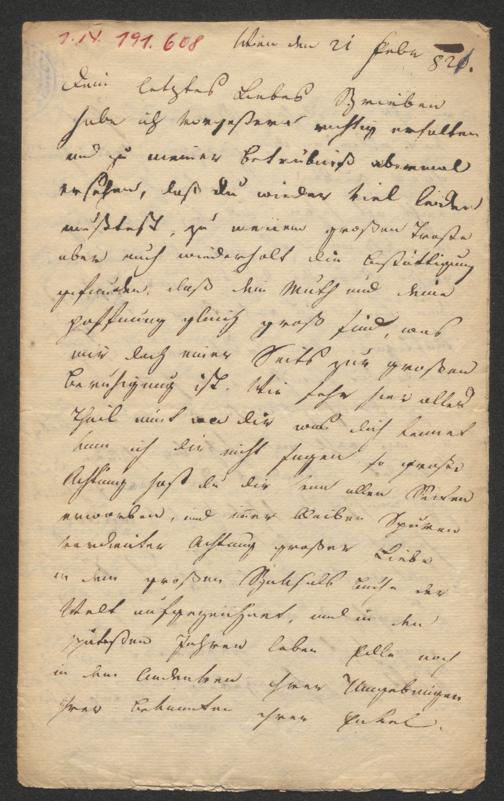 I. N. 191.608
Wien den 21 Febr 821.
Dein letztes Liebes Schreiben
habe ich vorgestern richtig erhalten
und zu meiner Betrübniß abermal
ersehen, daß du wieder viel leiden
mußtest, zu meinem großen Troste
aber auch wiederholt die Bestättigung
gefunden, daß dein Muth und deine
Hoffnung gleich groß sind, was
mir doch einer Seits zur großen
Beruhigung ist. Wie sehr hier alles
Theil nimt an dir was dich kennet
kann ich dir nicht sagen so große
Achtung hast du dir von allen Seiten
erworben, und immer bleiben Spuren
verdienter Achtung großer Liebe
in dem großen Schiksals Buche der
Welt aufgezeichnet, und in den
spätesten Jahren leben noch
in dem Andenken ihrer Umgebungen
ihrer Bekannten ihrer Enkel.